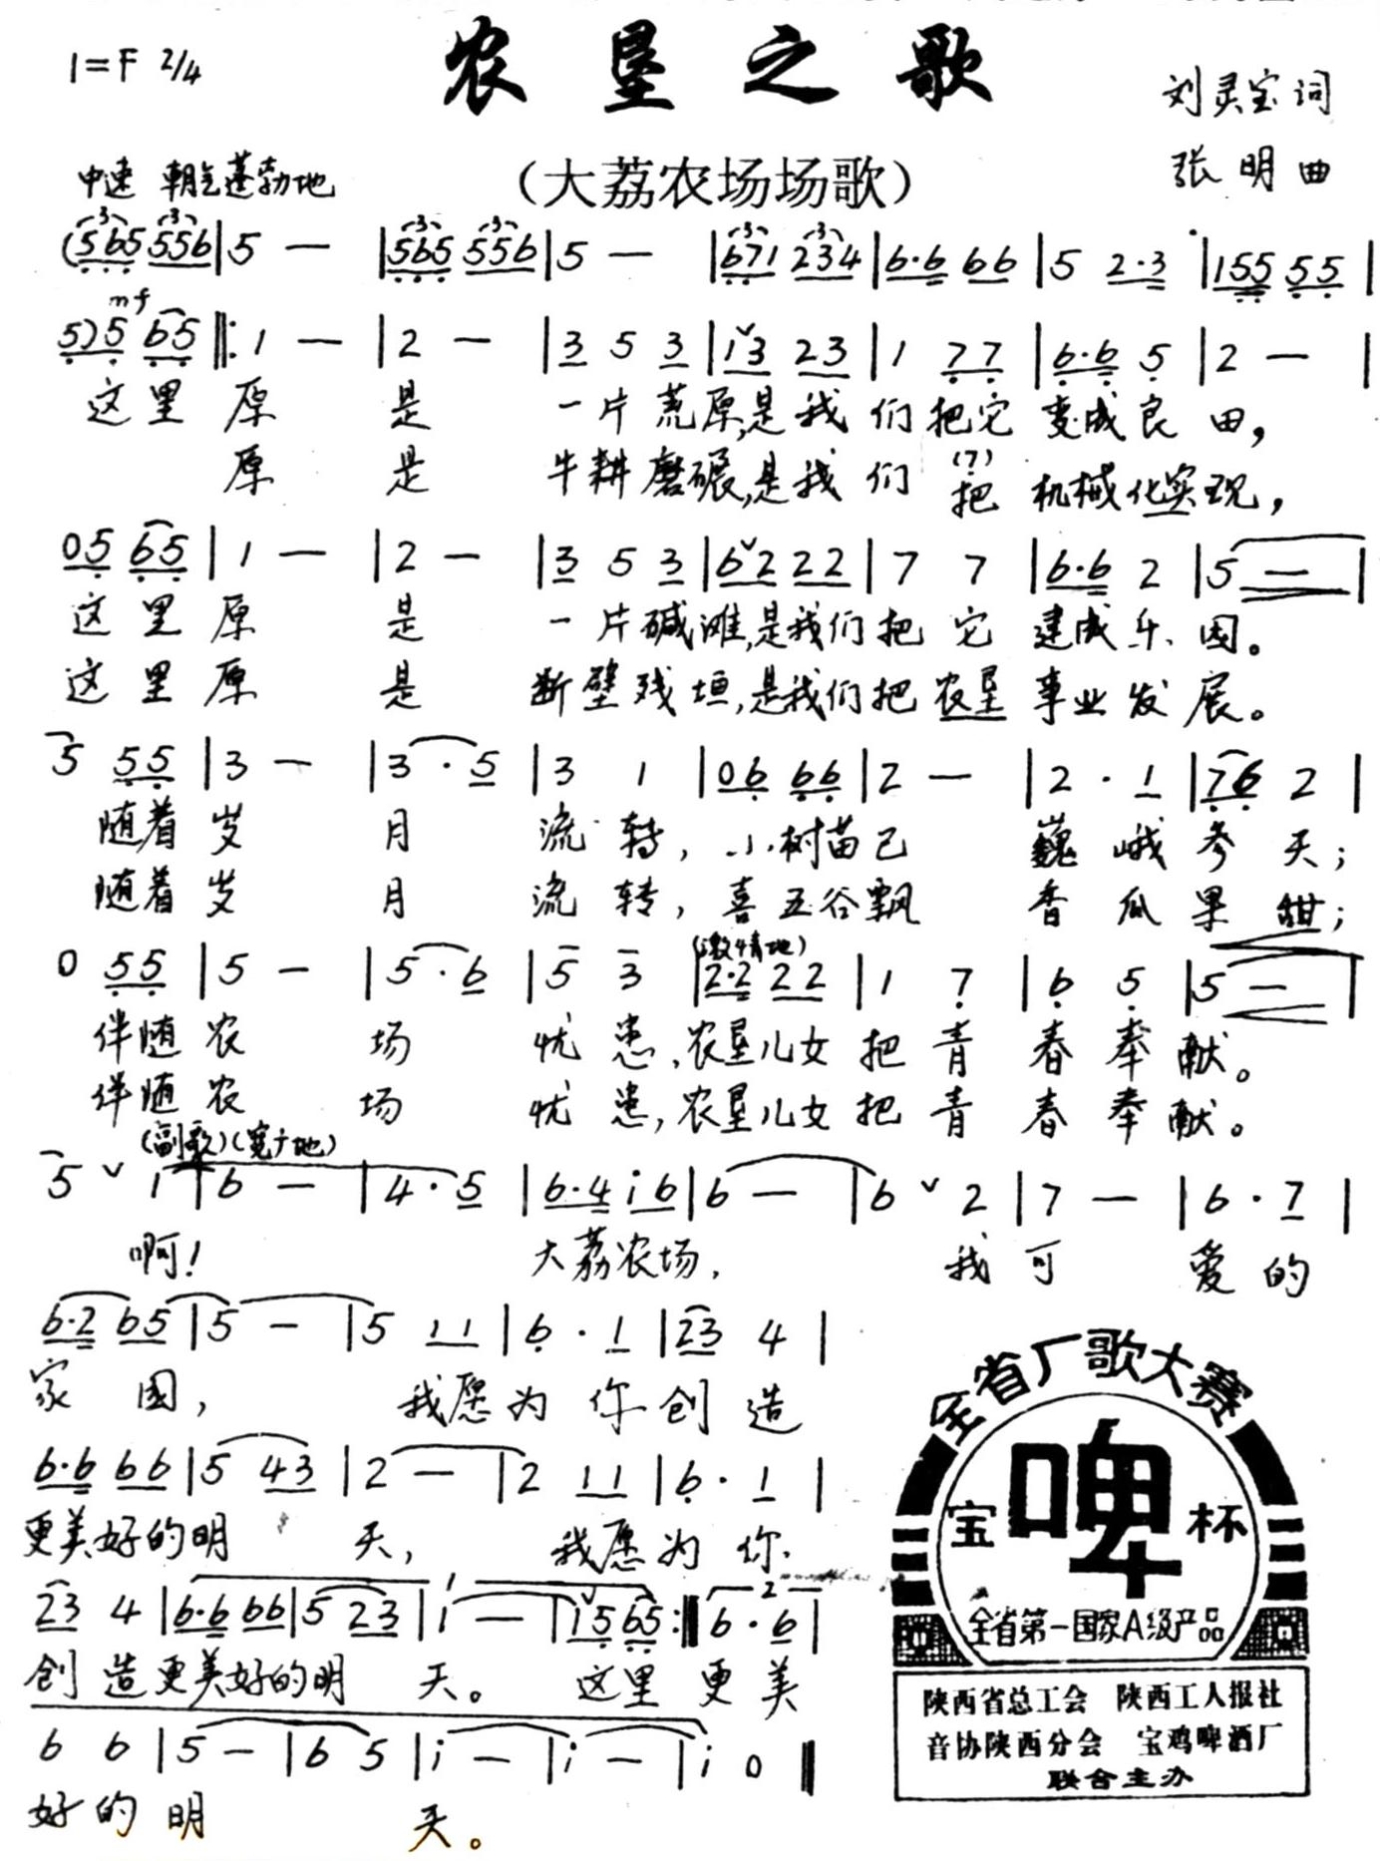 农垦之歌
1=F 2/4
刘灵宝词
张明曲
中速 朝气蓬勃地
(大荔农场场歌)
(565 556|5 — |565 556|5 — |671 234|6·6 66|5 2·3|155 55|
mf
5)5 65‖:1 — |2 — |3 5 3|1ˇ3 23|1 77|6·6 5|2 — |
这里原 是 一片荒原,是我们把它变成良田,
原 是 牛耕磨碾,是我们把机械化实现,
(7)
05 65|1 — |2 — |3 5 3|6ˇ2 22|7 7|6·6 2|5 — |
这里原 是 一片碱滩,是我们把它建成乐园。
这里原 是 断壁残垣,是我们把农垦事业发展。
5 55|3 — |3·5|3 1|06 66|2 — |2·1|76 2|
随着岁 月 流转,小树苗已 巍峨参天;
随着岁 月 流转,喜五谷飘 香瓜果甜;
(激情地)
0 55|5 — |5·6|5 3|2·2 22|1 7|6 5|5 — |
伴随农 场 忧患,农垦儿女把青春奉献。
伴随农 场 忧患,农垦儿女把青春奉献。
(副歌)(宽广地)
5 ˇ i|6 — |4·5|6·4 i6|6 — |6 ˇ 2|7 — |6·7|
啊! 大荔农场, 我可 爱的
6·2 65|5 — |5 11|6·1|23 4|
家园, 我愿为你创造
6·6 66|5 43|2 — |2 11|6·1|
更美好的明 天, 我愿为你
23 4|6·6 66|5 23|i — |iˇ5 65:‖6·6|
1 2
创造更美好的明 天。 这里更美
6 6|5 — |6 5|i — |i — |i 0‖
好的明 天。
全省厂歌大赛
宝啤杯
全省第一国家A级产品
陕西省总工会 陕西工人报社
音协陕西分会 宝鸡啤酒厂
联合主办